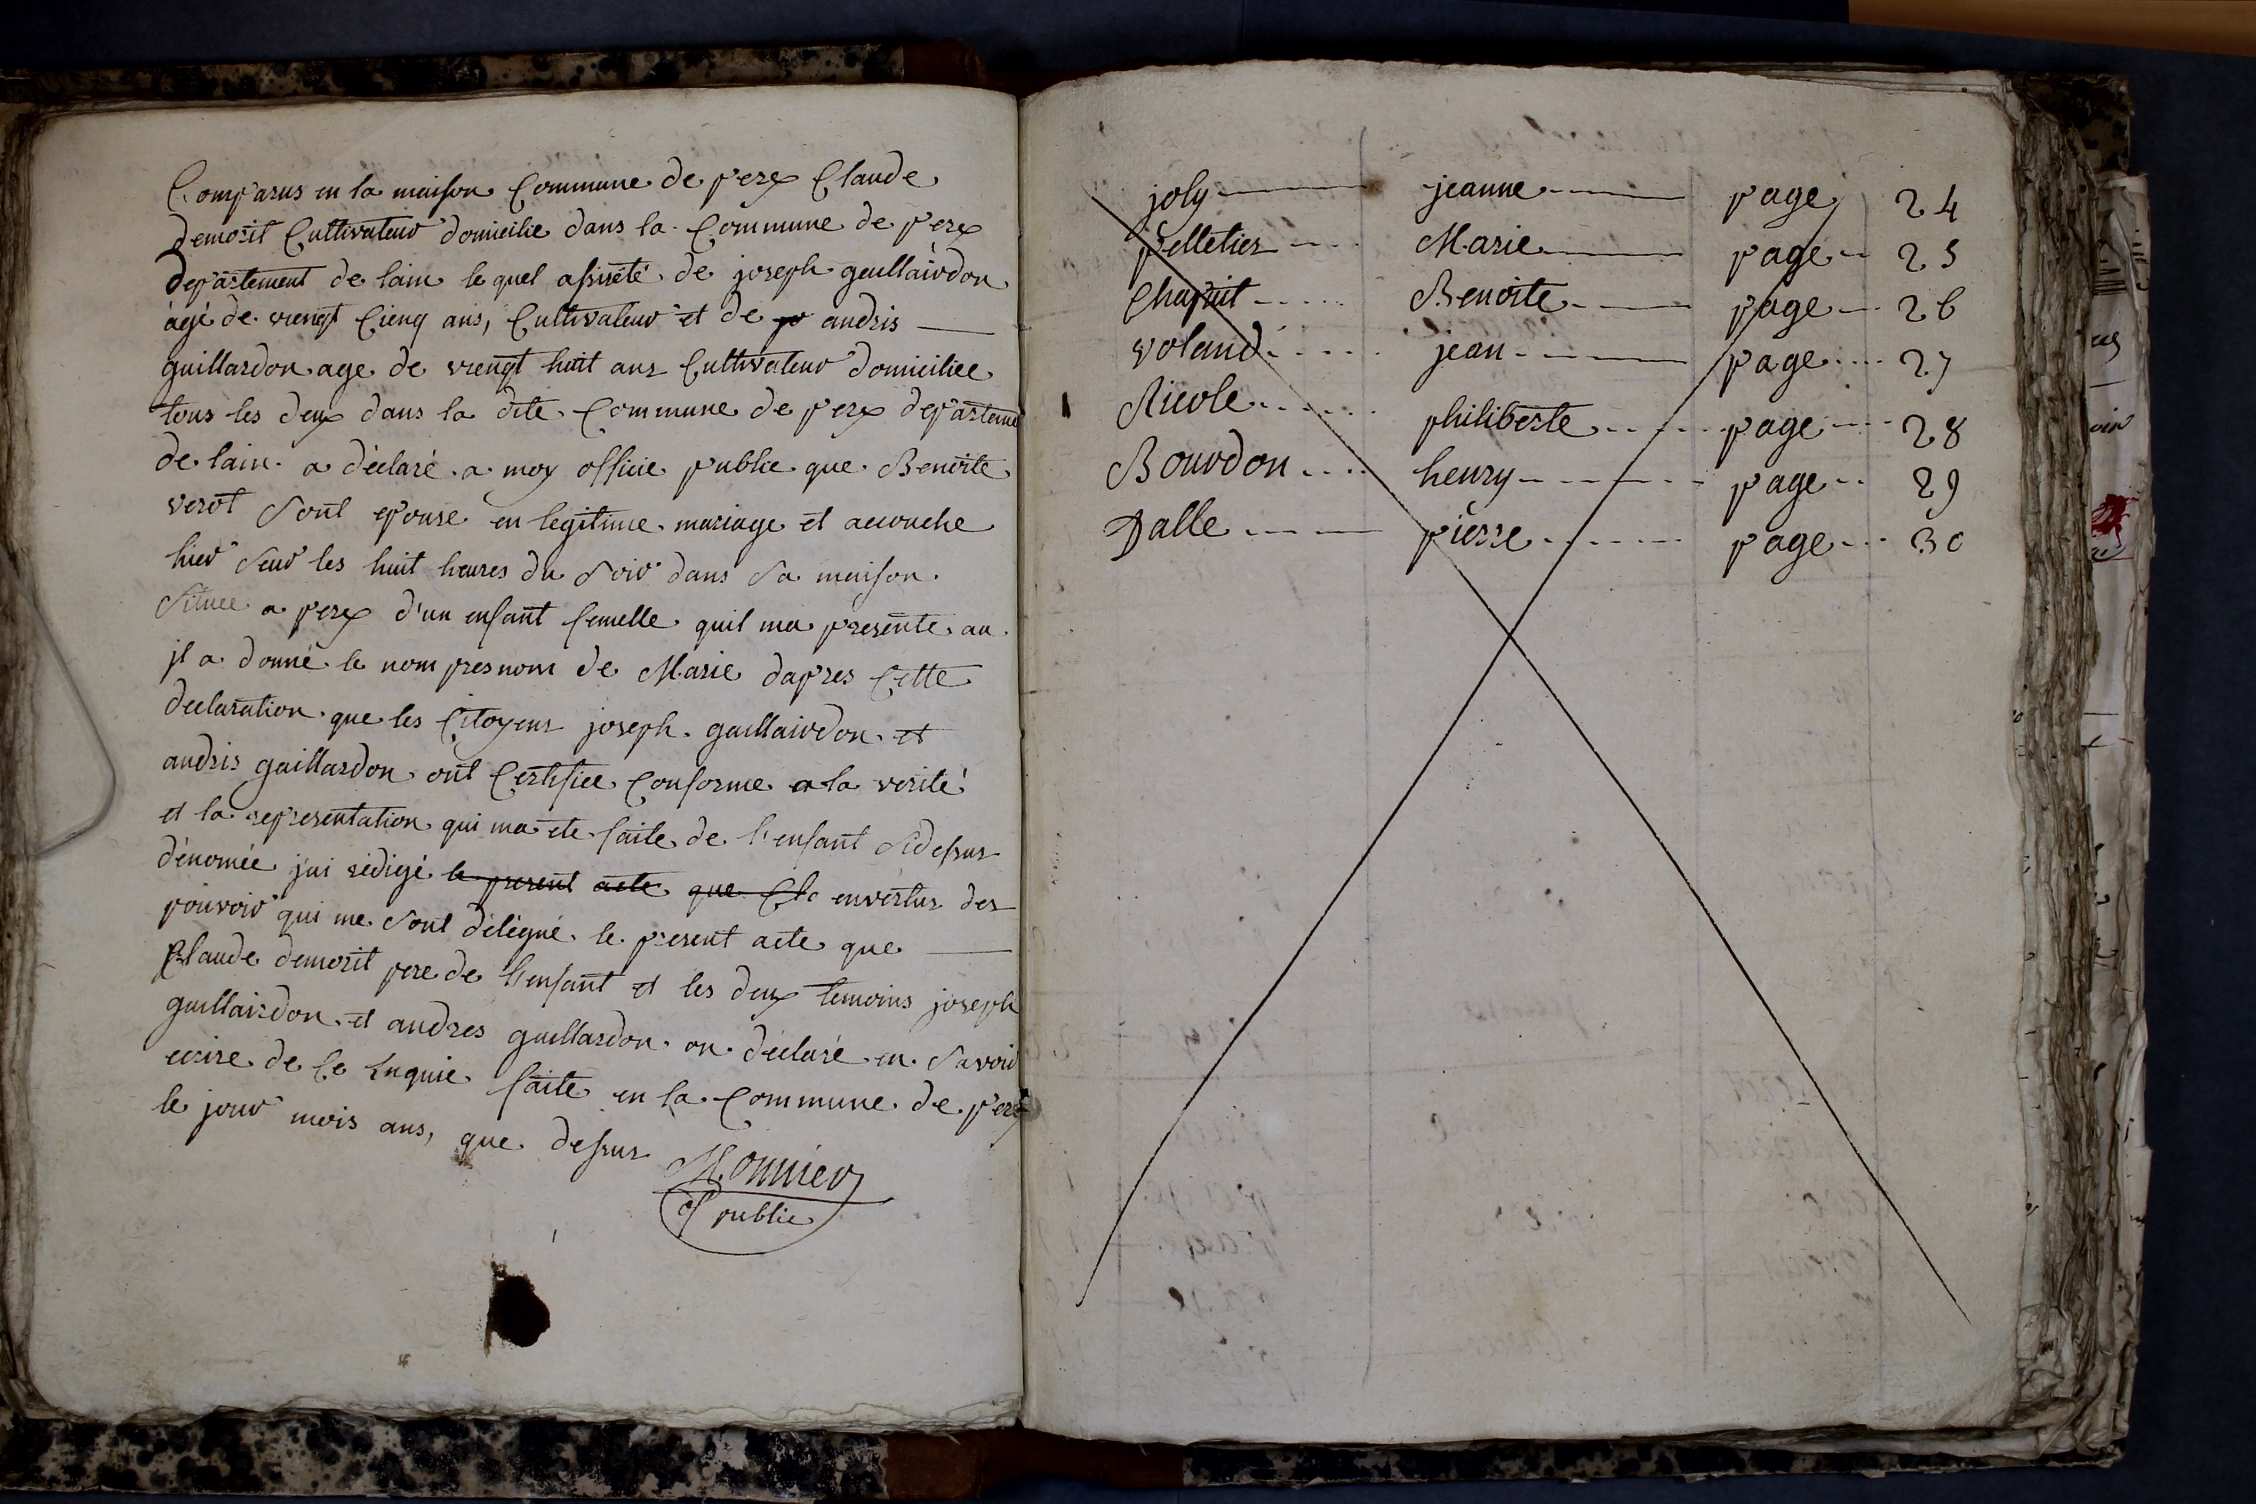 Comparus en la maison Commune de perex Claude
demorit Cultivateur domicilie dans la Commune de perex
departement de lain le quel assisté de joseph gaillairdon
àgé de viengt Cienq ans, Cultivateur et de andris
guillardon age de viengt huit ans Cultivateur domiciliee
tous les deux dans la dite Commune de perex departeme
de lain a déclaré a moy officie public que Benoite
verot sont epouse en legitime mariage et accouche
hier seur les huit heures du soir dans sa maison
Situee a perex d'un enfant femelle quil ma presente au
jl a donné le nom presnom de Marie dapres Cette
declaration que les Citoyens joseph gaillairdon et
andris gaillardon ont Certifiee Conforme a la verité
et la representation qui ma ete faite de l'enfant sidessus
dénomée jai redigé le present acte que Cla envertus des
pouvoir qui me sont délégué le present acte que
Claude demorit pere de l'enfant et les deux temoins joseph
guillairdon et andres guillardon on declaré en savoir
ecrire de Ce Enquie faite en la Commune de perex
le jour mois ans, que dessus
Monnier
of public
joly jeanne page 24
pelletier Marie page 25
Chapuit Benoite page 26
voland jean page 27
Nicole philiberte page 28
Bourdon henry page 29
Dalle pierre page 30